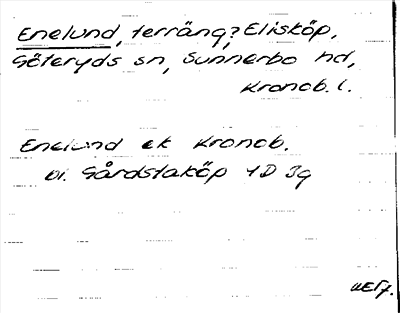 Enelund, terräng? Elisköp,
Göteryds sn, Sunnerbo hd,
Kronob. l.
Enelund ek Kronob.
bl. Gårdstaköp 4D 3g